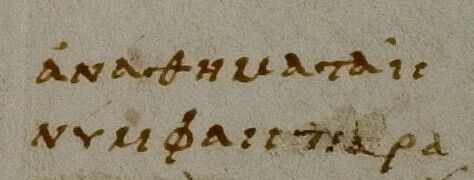 ἀναθήματα ταῖς
νύμφαις παρα